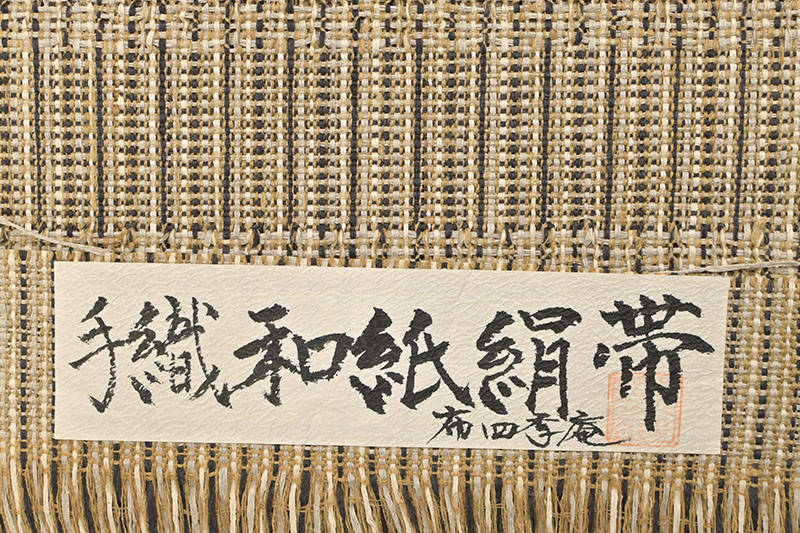 手織和紙絹帯
布四季庵